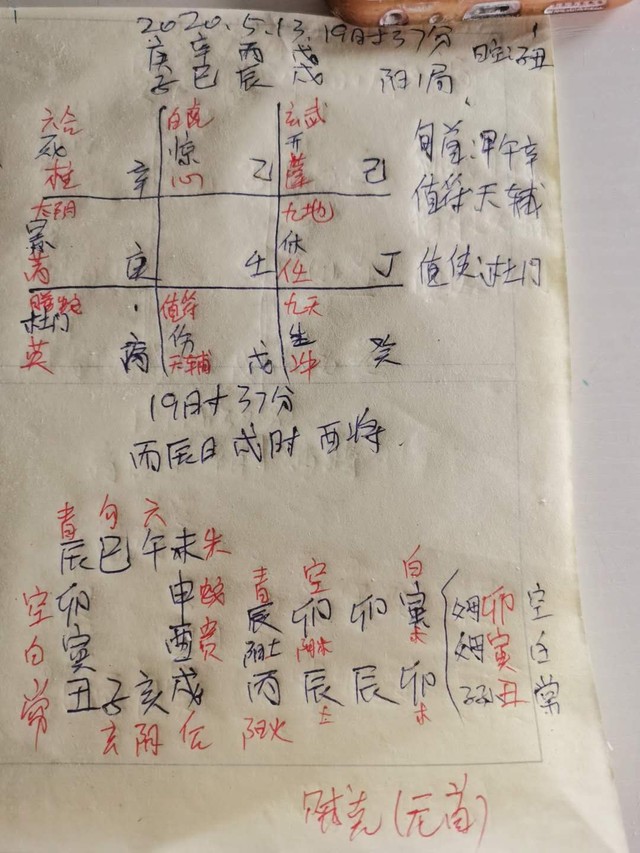 2020.5.13.19时37分
庚 辛 丙 戊
子 巳 辰 戌 阳1局
时空:子丑
六合 白虎 玄武
死 惊 开
柱 辛 心 乙 蓬 己
旬首:甲午辛
值符天辅
太阴 九地
景 休
芮 庚 壬 任 丁
值使:杜门
螣蛇 值符 九天
杜门 伤 生
英 丙 天辅 戊 冲 癸
19时37分
丙辰日 戌时 酉将.
青 勾 六
辰 巳 午 未 朱
空 卯 申 蛇
白 寅 酉 贵
常 丑 子 亥 戌
玄 阴 后
青 空 白
辰 卯 卯 寅
阳土 阴木 木
丙 辰 辰 卯
阳火 土 木
卯 空
寅 白
丑 常
贼克(元首)